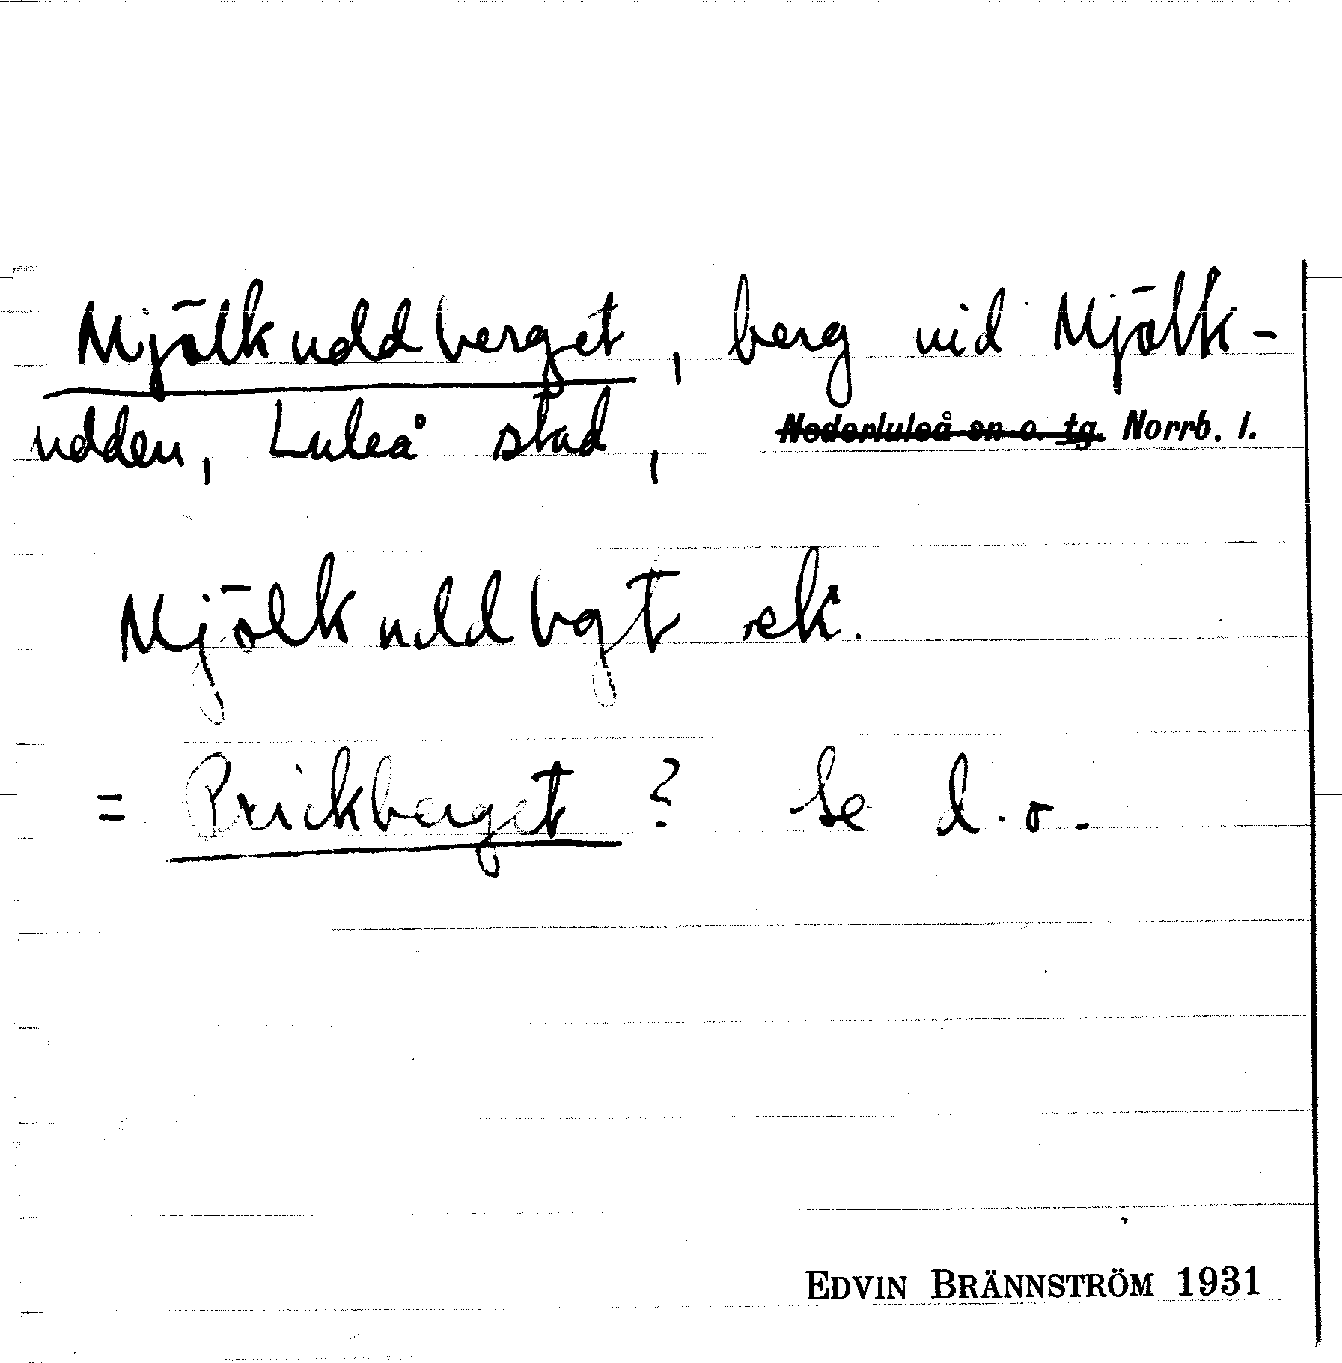 Mjölkuddberget, berg vid Mjölk-
udden, Luleå stad, Nederluleå sn o. tg. Norrb. l.
Mjölkuddbgt ek.
= Prickberget? Se d.o.
EDVIN BRÄNNSTRÖM 1931